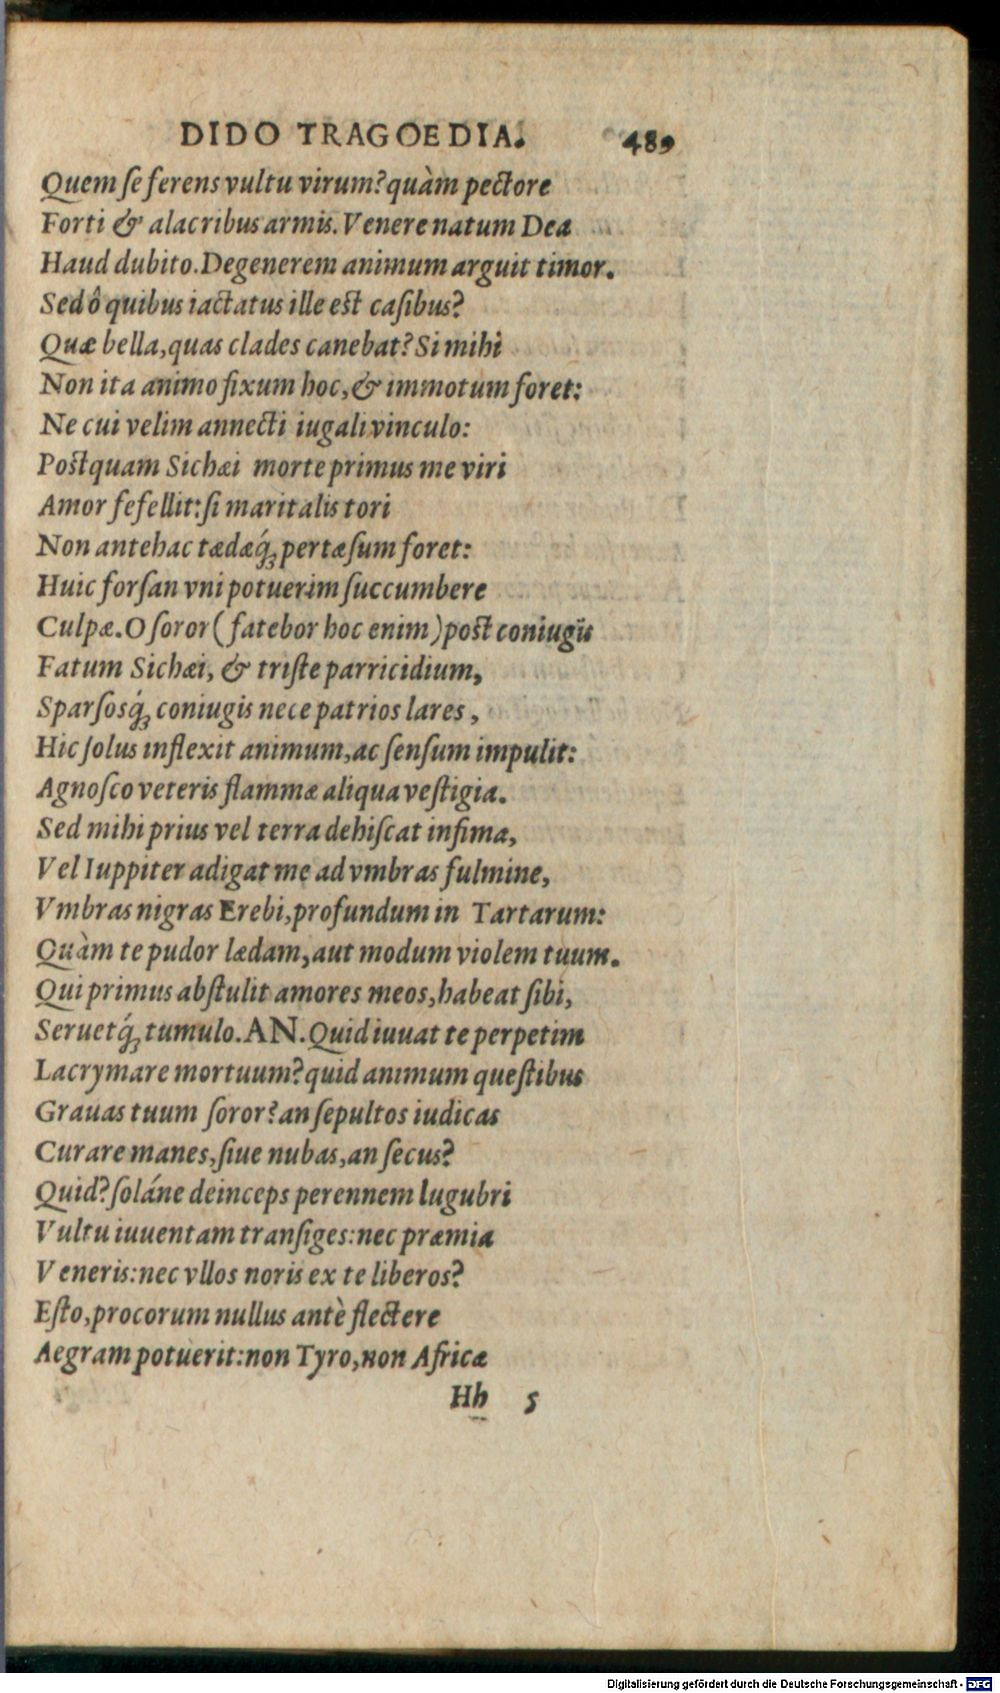 DIDO TRAGOEDIA. 489
Quem ſe ferens vultu virum? quàm pectore
Forti & alacribus armis. Venere natum Dea
Haud dubito. Degenerem animum arguit timor.
Sed ô quibus iactatus ille est caſibus?
Quæ bella, quas clades canebat? Si mihi
Non ita animo fixum hoc, & immotum foret:
Ne cui velim annecti iugali vinculo:
Postquam Sichæi morte primus me viri
Amor fefellit: ſi maritalis tori
Non antehac tædæq́; pertæſum foret:
Huic forſan vni potuerim ſuccumbere
Culpæ. O ſoror (fatebor hoc enim) post coniugii
Fatum Sichæi, & triſte parricidium,
Sparſosq́; coniugis nece patrios lares,
Hic ſolus inflexit animum, ac ſenſum impulit:
Agnoſco veteris flammæ aliqua veſtigia.
Sed mihi prius vel terra dehiſcat infima,
Vel Iuppiter adigat me ad vmbras fulmine,
Vmbras nigras Erebi, profundum in Tartarum:
Quàm te pudor lædam, aut modum violem tuum.
Qui primus abſtulit amores meos, habeat ſibi,
Seruetq́; tumulo. AN. Quid iuuat te perpetim
Lacrymare mortuum? quid animum queſtibus
Grauas tuum ſoror? an ſepultos iudicas
Curare manes, ſiue nubas, an ſecus?
Quid? ſoláne deinceps perennem lugubri
Vultu iuuentam tranſiges: nec præmia
Veneris: nec vllos noris ex te liberos?
Eſto, procorum nullus antè flectere
Aegram potuerit: non Tyro, non Africæ
Hh 5
Digitalisierung gefördert durch die Deutsche Forschungsgemeinschaft - DFG